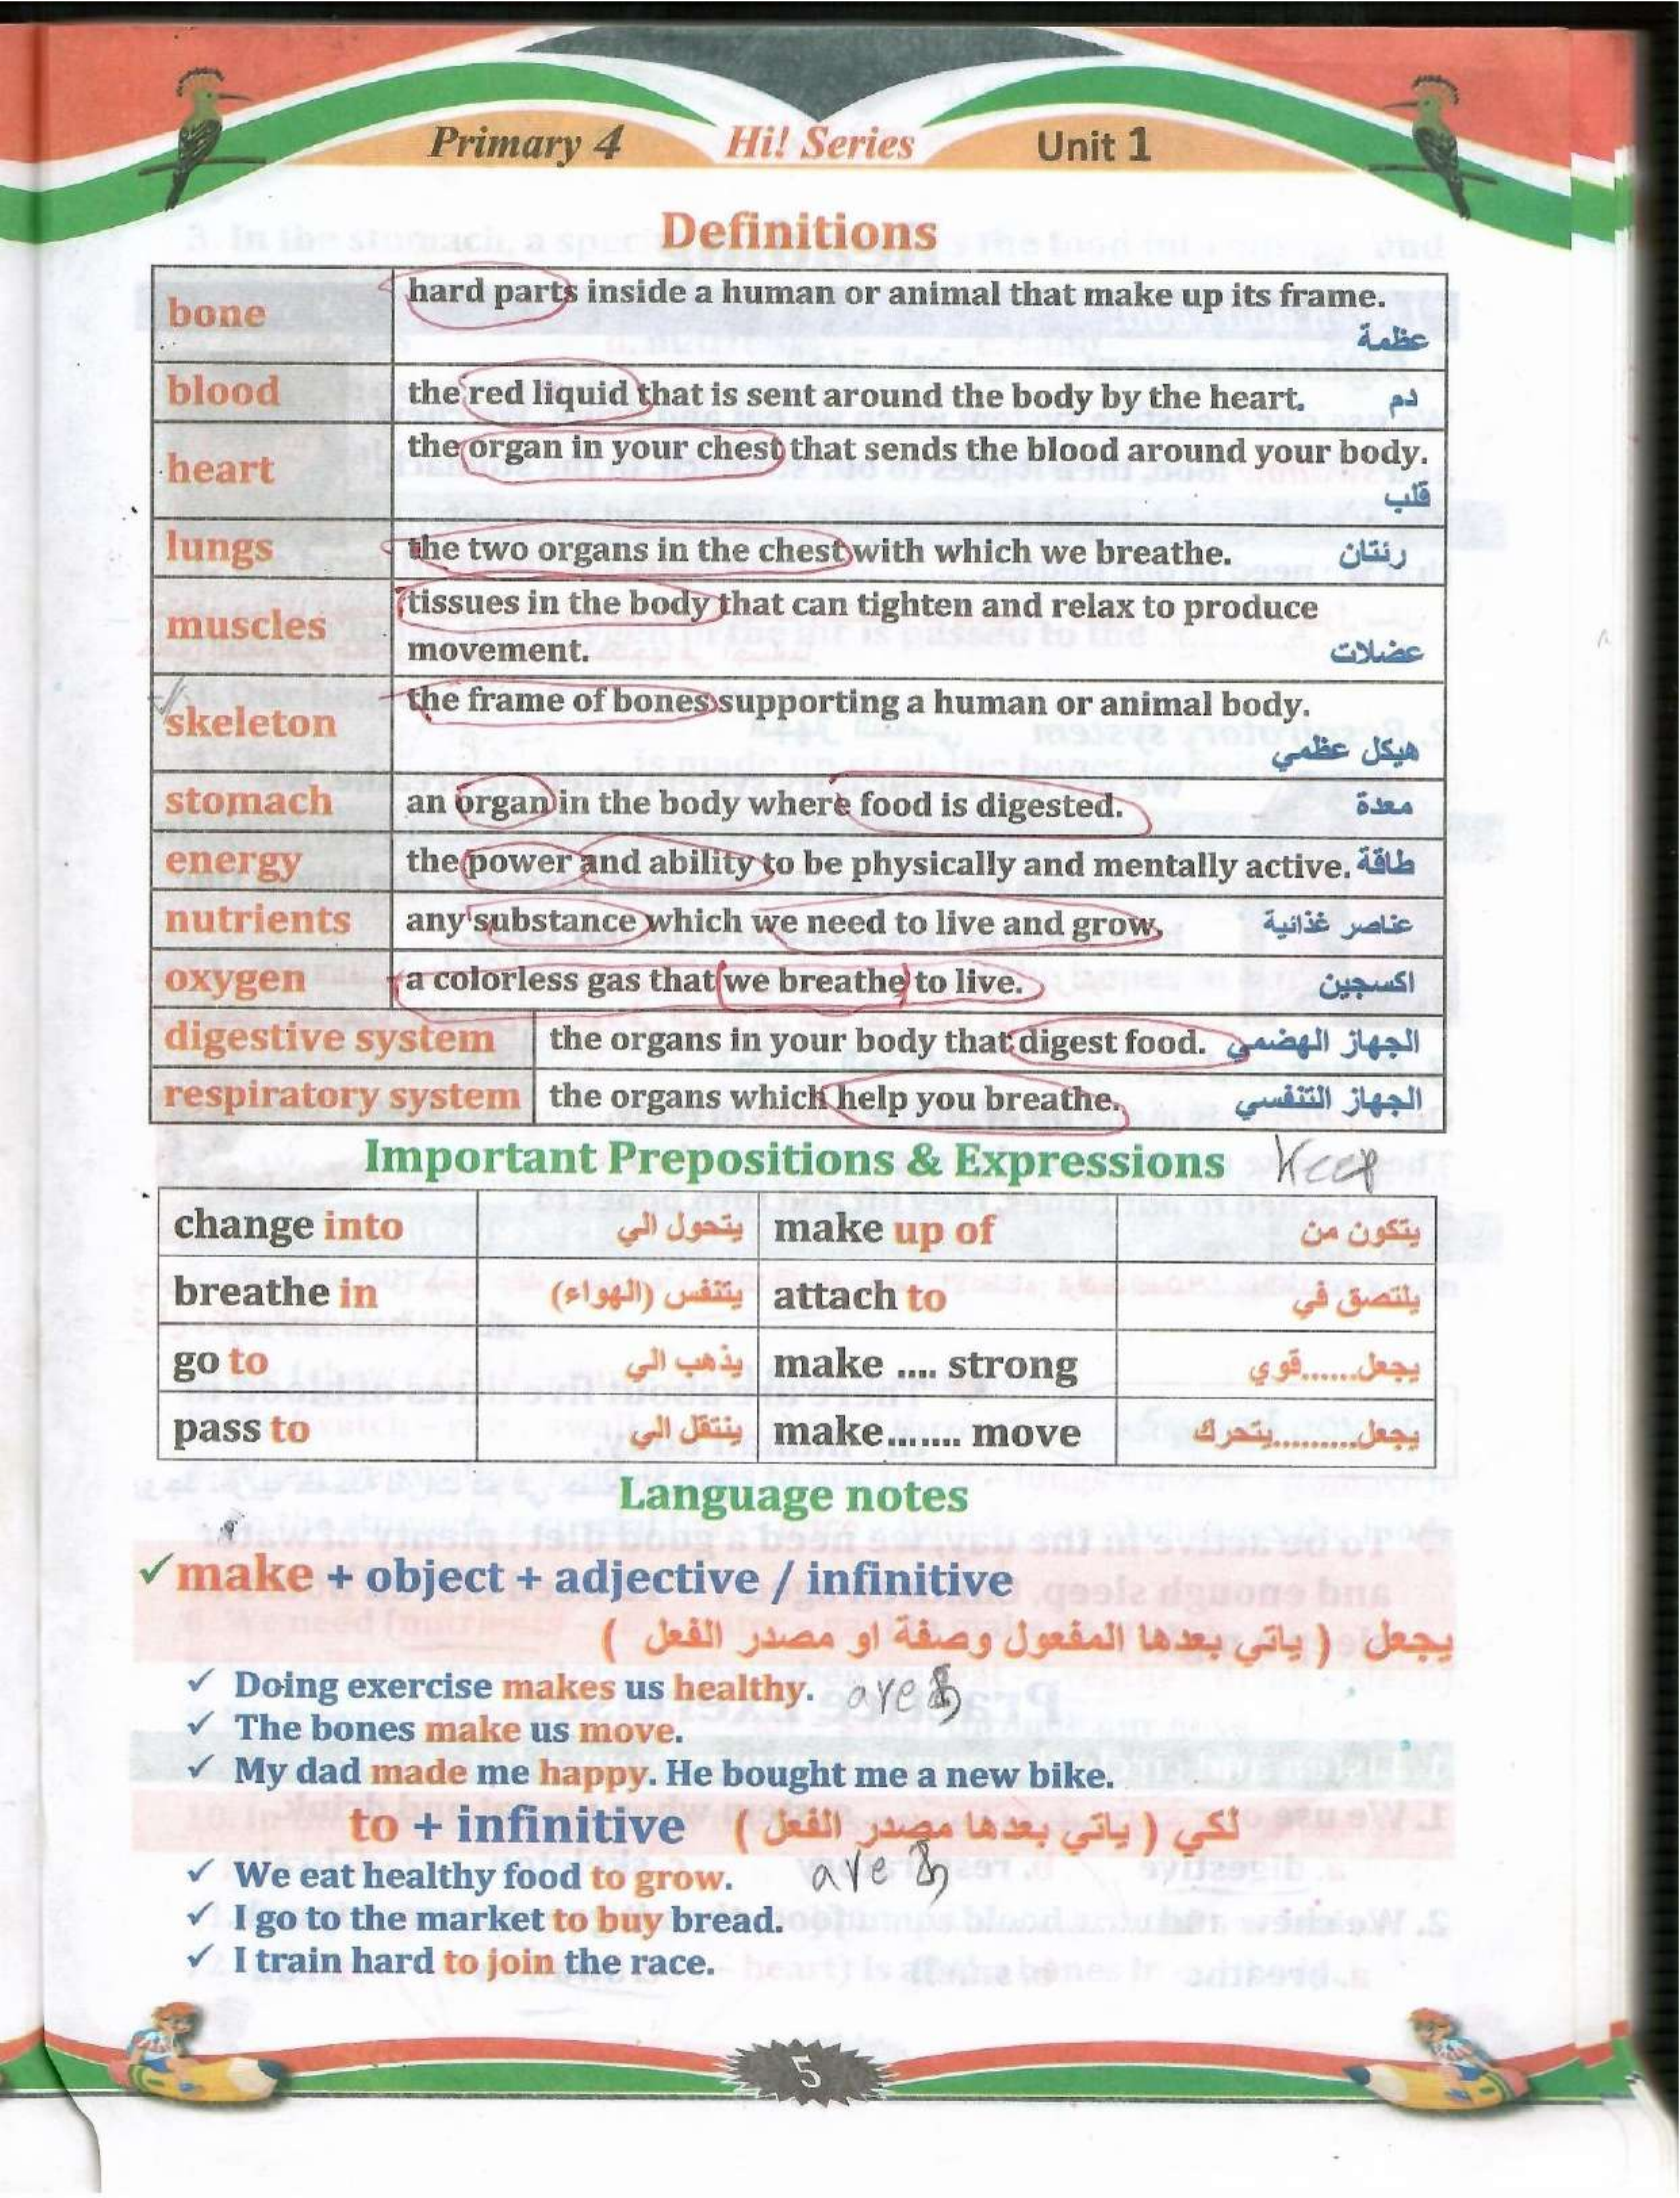 Primary 4 Hi! Series Unit 1
Definitions
bone hard parts inside a human or animal that make up its frame.
عظمة
blood the red liquid that is sent around the body by the heart. دم
heart the organ in your chest that sends the blood around your body.
قلب
lungs the two organs in the chest with which we breathe. رئتان
muscles tissues in the body that can tighten and relax to produce
movement. عضلات
skeleton the frame of bones supporting a human or animal body.
هيكل عظمي
stomach an organ in the body where food is digested. معدة
energy the power and ability to be physically and mentally active. طاقة
nutrients any substance which we need to live and grow. عناصر غذائية
oxygen a colorless gas that we breathe to live. اكسجين
digestive system the organs in your body that digest food. الجهاز الهضمي
respiratory system the organs which help you breathe. الجهاز التنفسي
Important Prepositions & Expressions Keep
change into يتحول الي make up of يتكون من
breathe in يتنفس (الهواء) attach to يلتصق في
go to يذهب الي make .... strong يجعل......قوي
pass to ينتقل الي make....... move يجعل..........يتحرك
Language notes
✓ make + object + adjective / infinitive
يجعل ( ياتي بعدها المفعول وصفة او مصدر الفعل )
✓ Doing exercise makes us healthy.
✓ The bones make us move.
✓ My dad made me happy. He bought me a new bike.
to + infinitive لكي ( ياتي بعدها مصدر الفعل )
✓ We eat healthy food to grow.
✓ I go to the market to buy bread.
✓ I train hard to join the race.
5